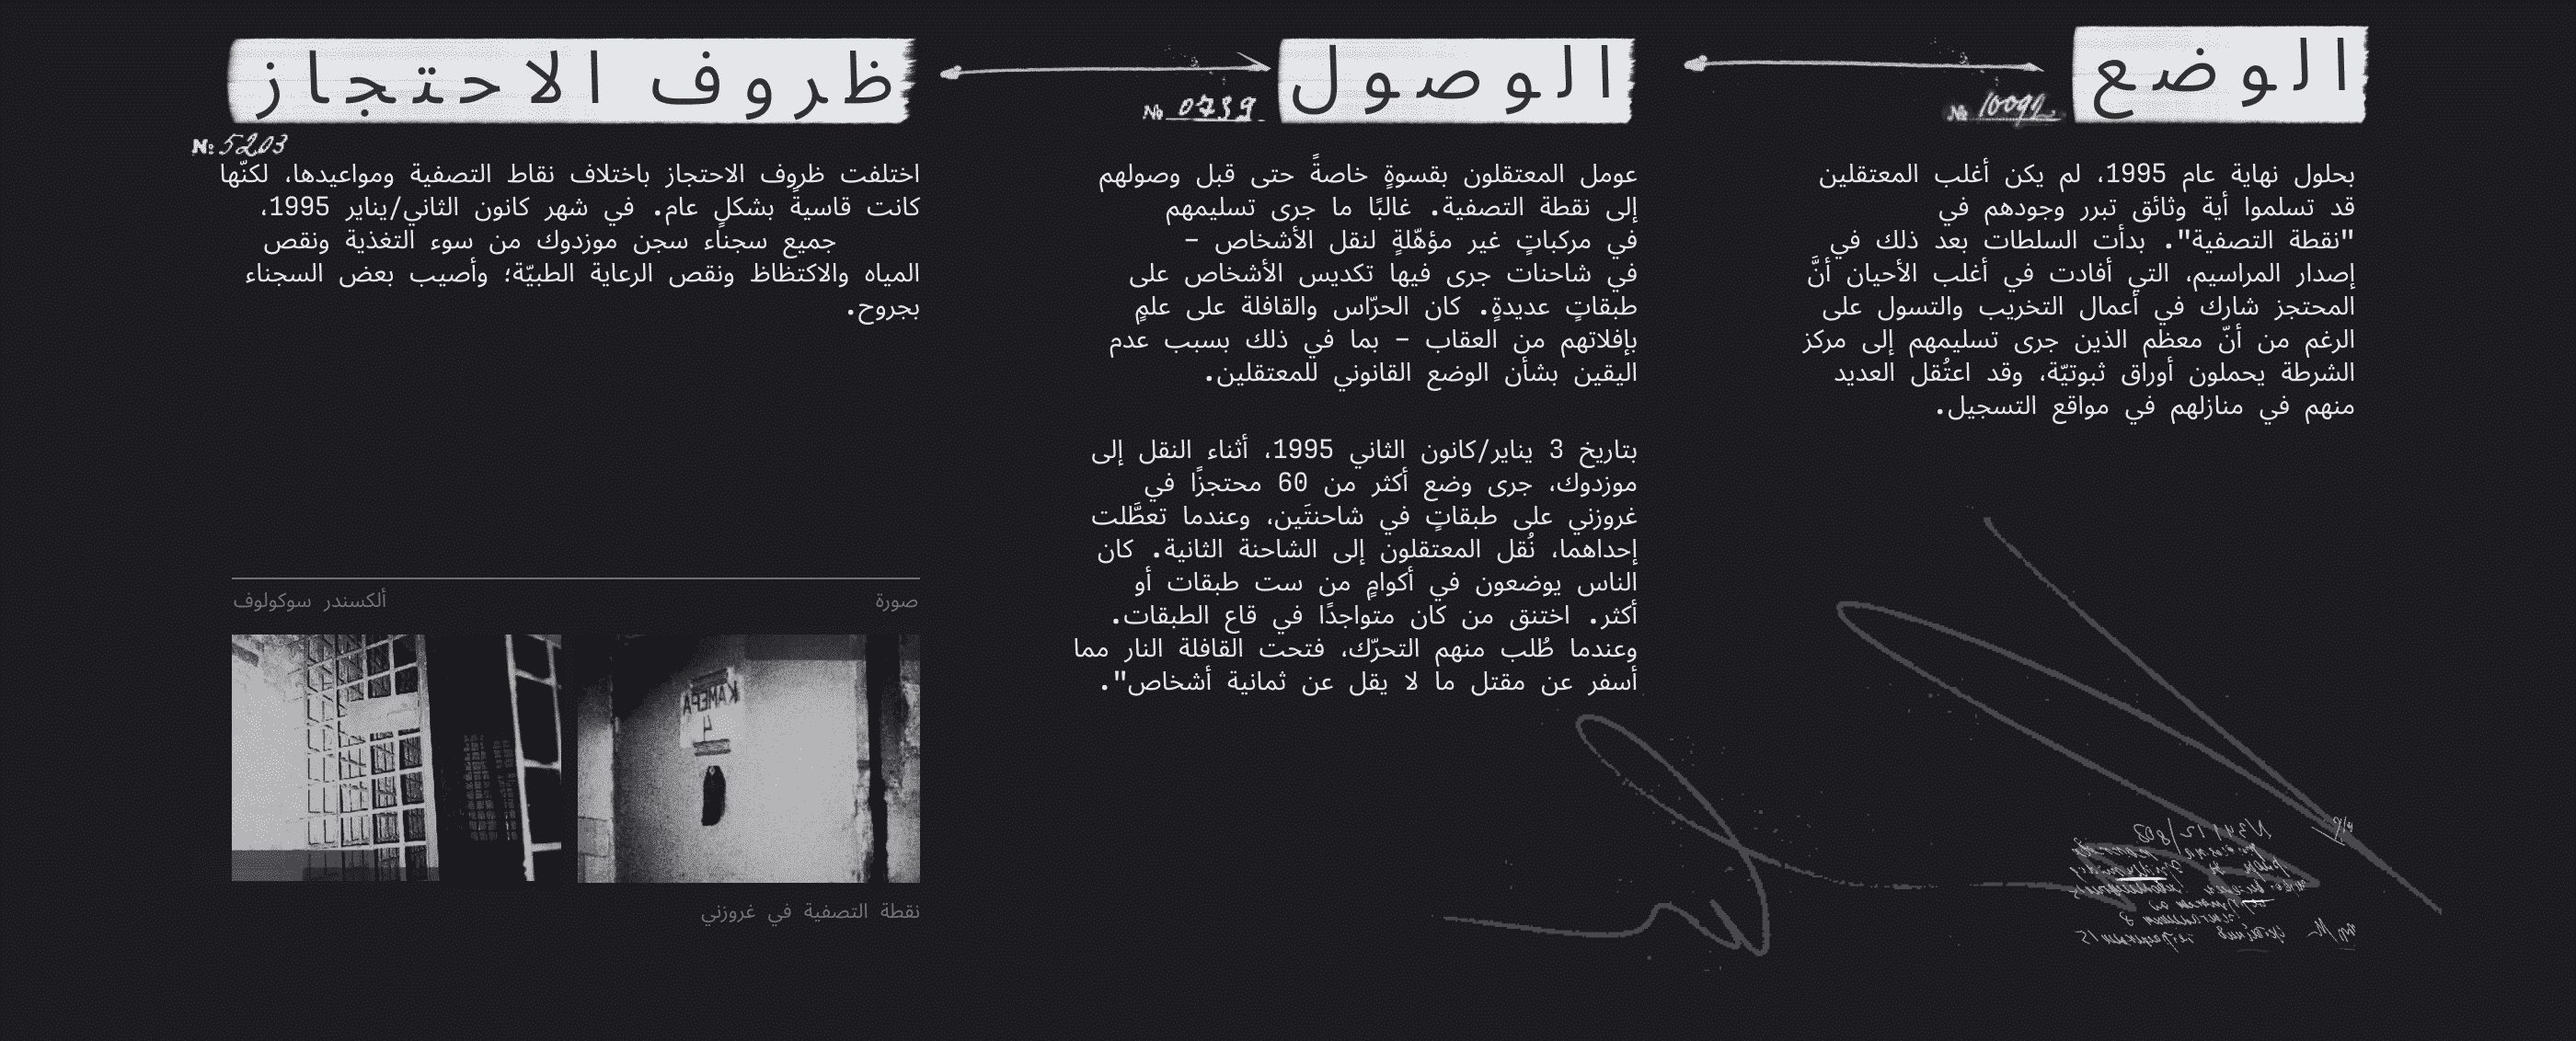 الوضع
№ 10092
بحلول نهاية عام 1995، لم يكن أغلب المعتقلين
قد تسلموا أية وثائق تبرر وجودهم في
"نقطة التصفية". بدأت السلطات بعد ذلك في
إصدار المراسيم، التي أفادت في أغلب الأحيان أنَّ
المحتجز شارك في أعمال التخريب والتسول على
الرغم من أنّ معظم الذين جرى تسليمهم إلى مركز
الشرطة يحملون أوراق ثبوتيّة، وقد اعتُقل العديد
منهم في منازلهم في مواقع التسجيل.
الوصول
№ 0739
عومل المعتقلون بقسوةٍ خاصةً حتى قبل وصولهم
إلى نقطة التصفية. غالبًا ما جرى تسليمهم
في مركباتٍ غير مؤهّلةٍ لنقل الأشخاص –
في شاحنات جرى فيها تكديس الأشخاص على
طبقاتٍ عديدةٍ. كان الحرّاس والقافلة على علمٍ
بإفلاتهم من العقاب – بما في ذلك بسبب عدم
اليقين بشأن الوضع القانوني للمعتقلين.
بتاريخ 3 يناير/كانون الثاني 1995، أثناء النقل إلى
موزدوك، جرى وضع أكثر من 60 محتجزًا في
غروزني على طبقاتٍ في شاحنتَين، وعندما تعطَّلت
إحداهما، نُقل المعتقلون إلى الشاحنة الثانية. كان
الناس يوضعون في أكوامٍ من ست طبقات أو
أكثر. اختنق من كان متواجدًا في قاع الطبقات.
وعندما طُلب منهم التحرّك، فتحت القافلة النار مما
أسفر عن مقتل ما لا يقل عن ثمانية أشخاص".
ظروف الاحتجاز
№ 5203
اختلفت ظروف الاحتجاز باختلاف نقاط التصفية ومواعيدها، لكنّها
كانت قاسيةً بشكلٍ عام. في شهر كانون الثاني/يناير 1995،
جميع سجناء سجن موزدوك من سوء التغذية ونقص
المياه والاكتظاظ ونقص الرعاية الطبيّة؛ وأصيب بعض السجناء
بجروح.
صورة
ألكسندر سوكولوف
КАМЕРА
4
نقطة التصفية في غروزني